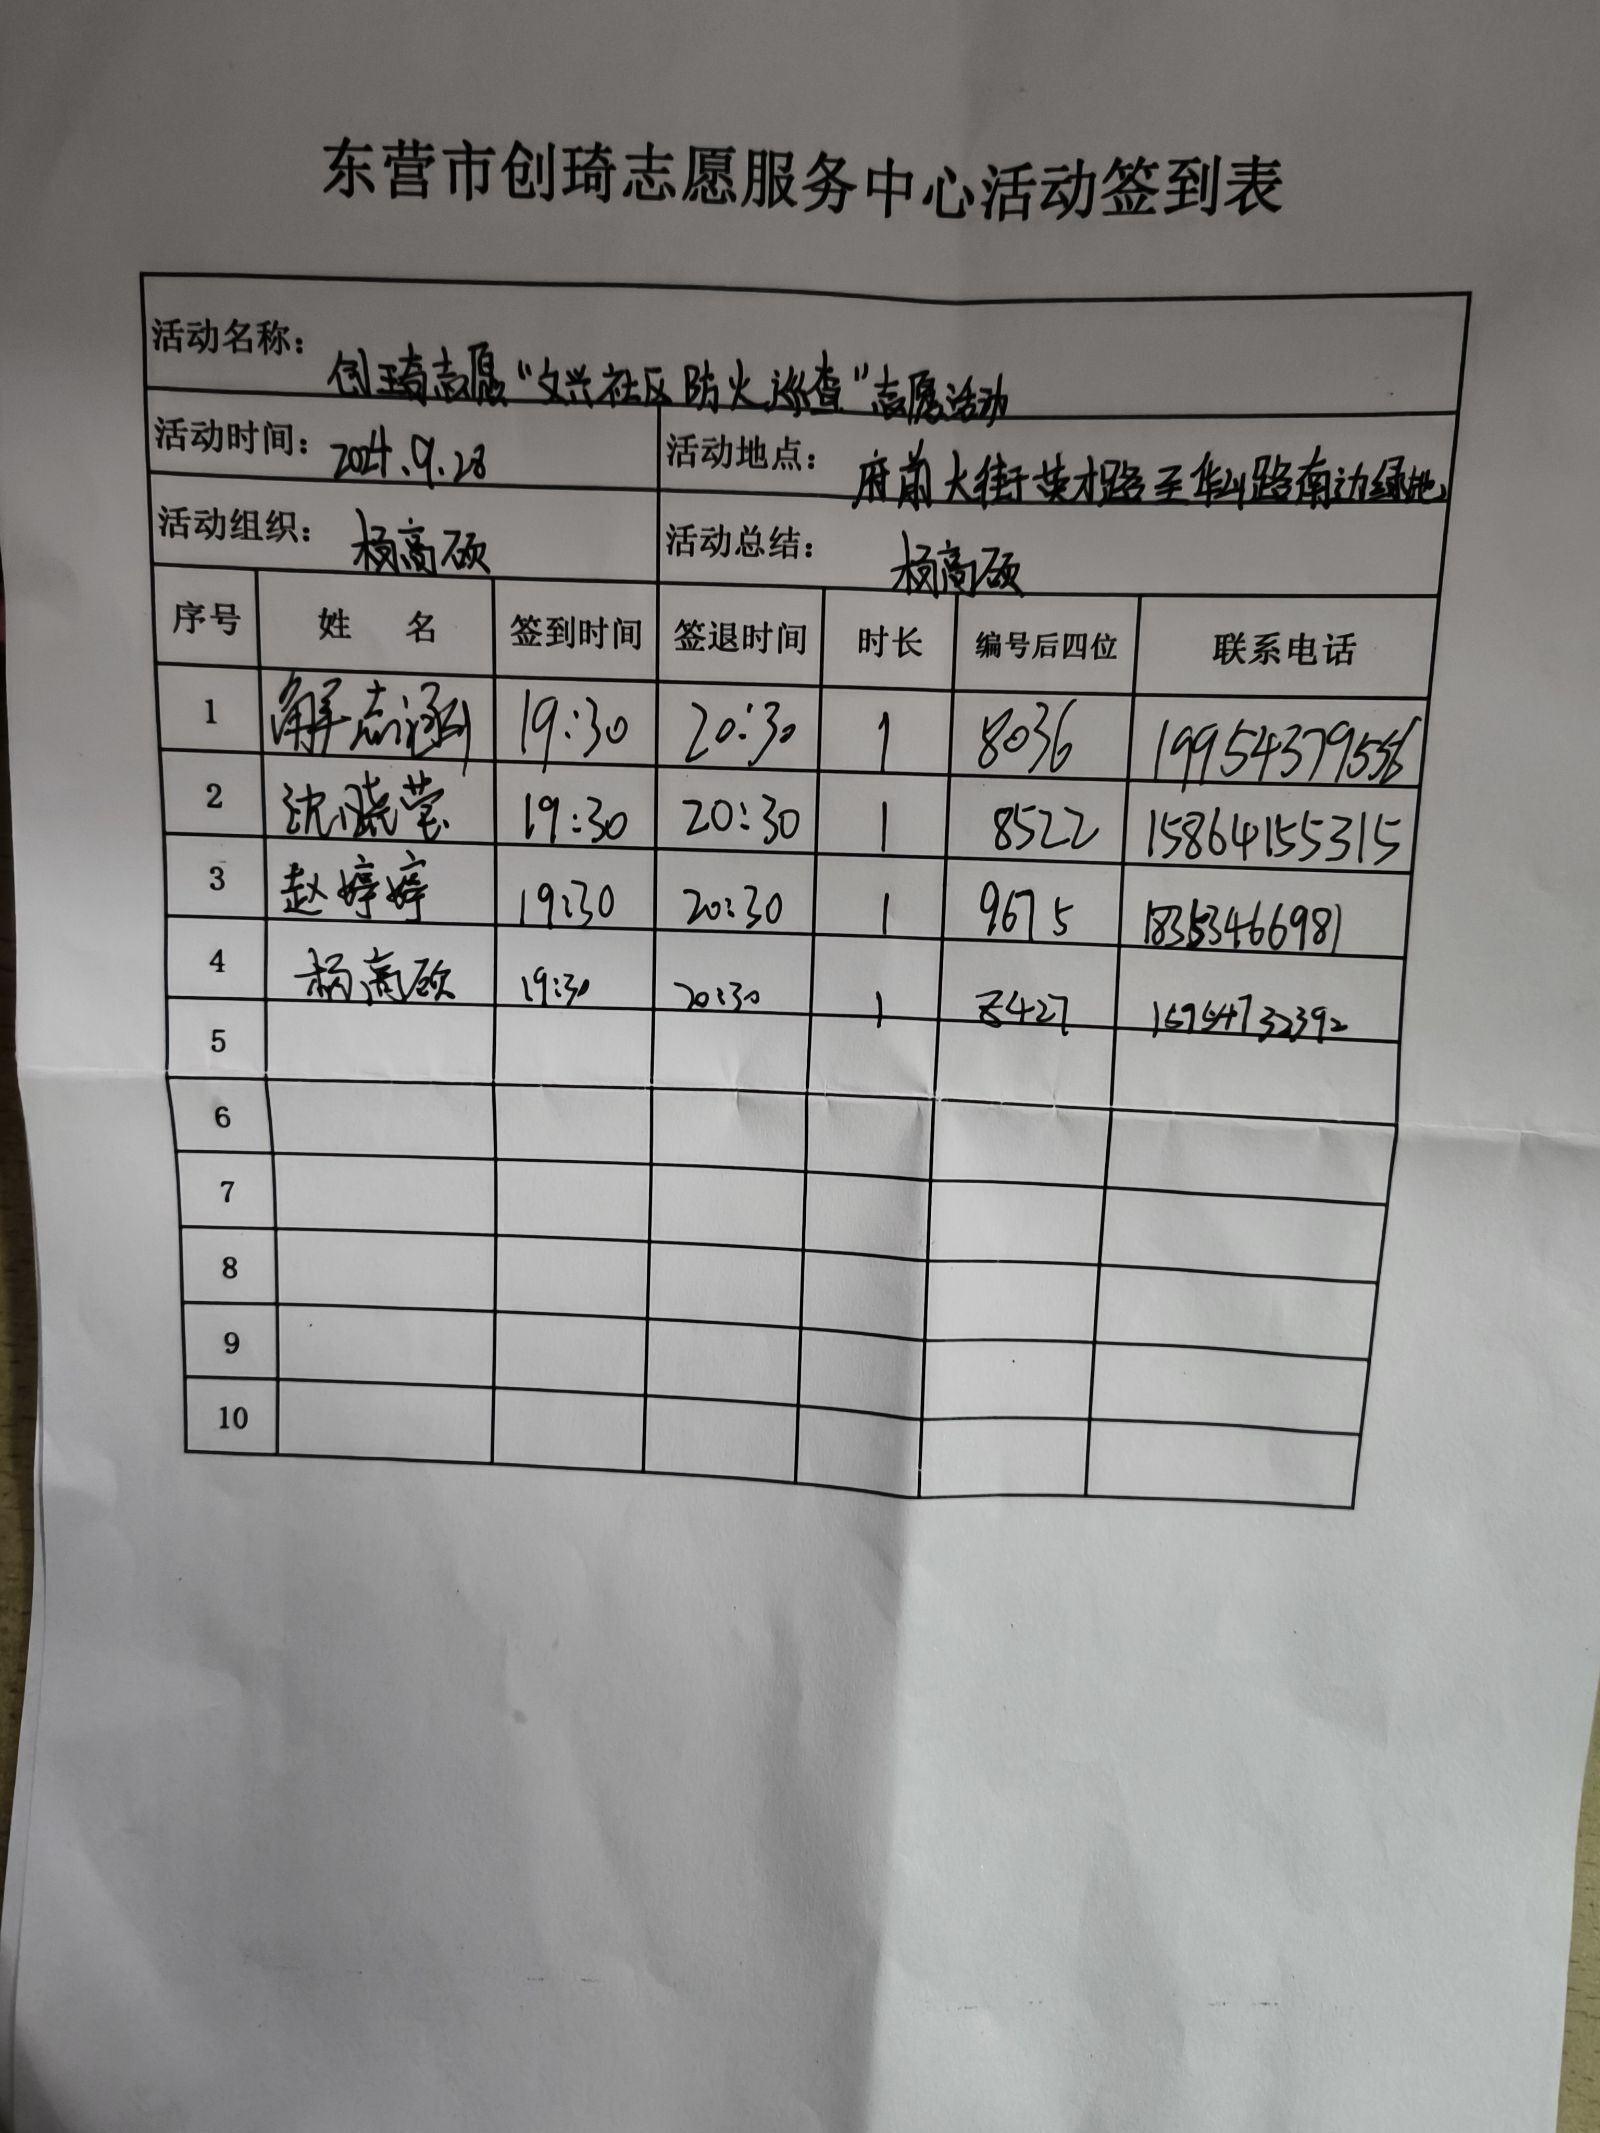 东营市创琦志愿服务中心活动签到表
活动名称: 创琦志愿“文兴社区防火巡查”志愿活动
活动时间: 2024.9.28 活动地点: 府前大街英才路至华山路南边绿地
活动组织: 杨高硕 活动总结: 杨高硕
序号 姓 名 签到时间 签退时间 时长 编号后四位 联系电话
1 解志涵 19:30 20:30 1 8036 19954379556
2 沈晓莹 19:30 20:30 1 8522 15864155315
3 赵婷婷 19:30 20:30 1 9675 18353466981
4 杨高硕 19:30 20:30 1 8427 15954732392
5
6
7
8
9
10